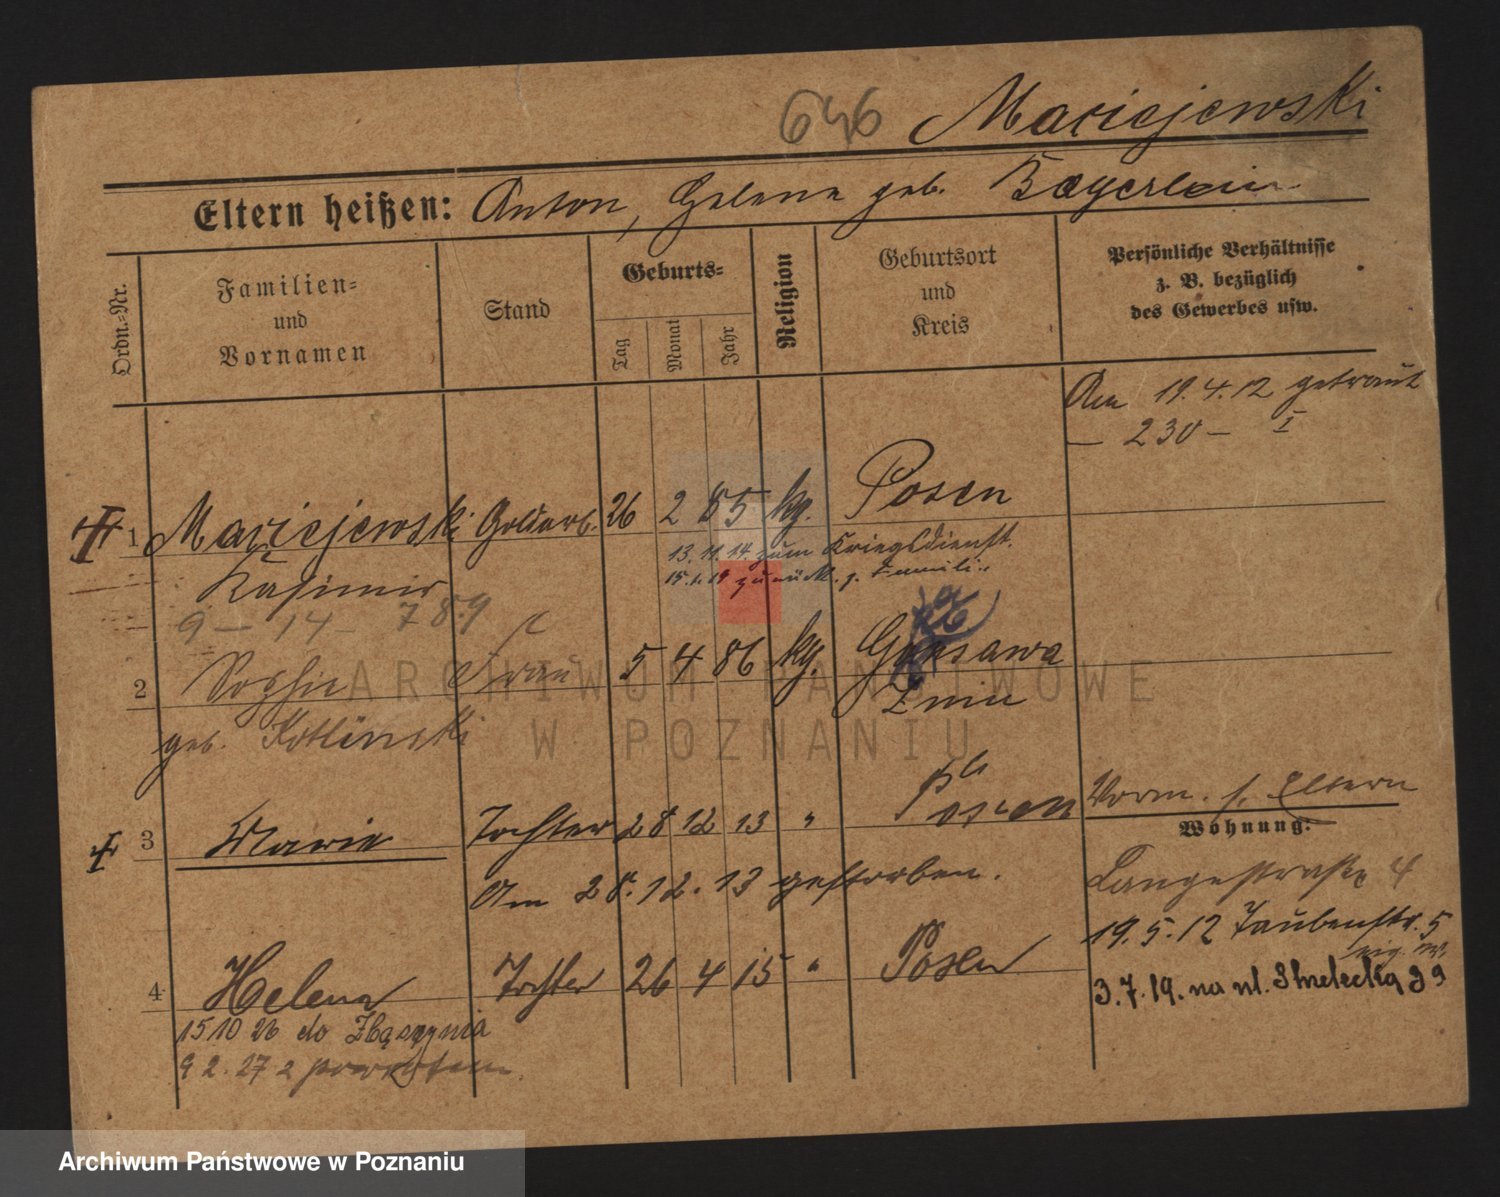 646 Maciejewski
Eltern heißen: Anton, Helene geb. Bayerlein
Ordn.-Nr.
Familien-
und
Vornamen
Stand
Geburts-
Tag
Monat
Jahr
Religion
Geburtsort
und
Kreis
Persönliche Verhältnisse
z. B. bezüglich
des Gewerbes usw.
Am 19.4.12 getraut
— 230 — I
1 Maciejewski Goldarb. 26 2 85 kg. Posen
Kasimir
13.11.14. zum Kriegsdienst.
15.1.19 zurück z. Familie
9 — 14 — 789
2 Sophie Frau 5 4 86 kg. Gonsawa
geb. Kotlinski
Znin
3 Marie Tochter 28 12 13 " Posen
Vorm. s. Eltern
Wohnung:
Am 28.12.13 gestorben.
Langestraße 4
19.5.12 Taubenstr. 5
4 Helena Tochter 26 4 15 " Posen
3.7.19. na ul. Strzelecką 39
15 10 26 do Zbąszynia
9 2. 27 z powrotem
ARCHIWUM PAŃSTWOWE
W POZNANIU
Archiwum Państwowe w Poznaniu